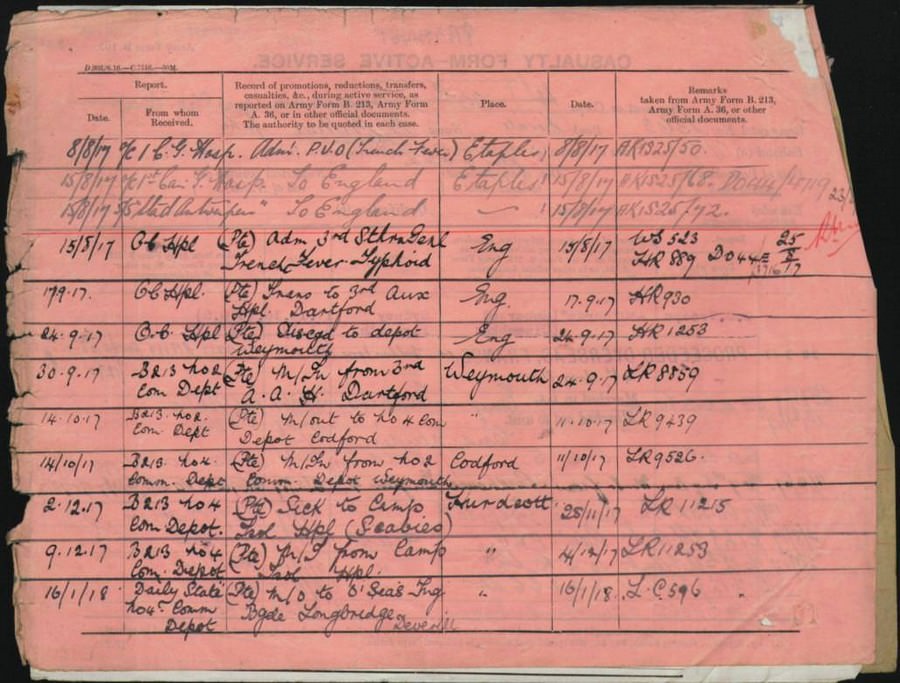 CASUALTY FORM—ACTIVE SERVICE.
Report.
Record of promotions, reductions, transfers, casualties, &c., during active service, as reported on Army Form B. 213, Army Form A. 36, or in other official documents. The authority to be quoted in each case.
Place.
Date.
Remarks taken from Army Form B. 213, Army Form A. 36, or other official documents.
Date.
From whom Received.
8/8/17 1 C. G. Hosp. Adm. P.U.O (Trench Fever) Etaples 8/8/17 AK1525/50.
15/8/17 1st Can. G. Hosp. To England Etaples 15/8/17 AK1525/68.
15/8/17 "Stad Antwerpen" To England 15/8/17 AK1525/72.
15/8/17 O C Hpl (Pte) Adm 3rd Sthrn Genl Eng 15/8/17 WS 523
Trench Fever Typhoid HR 889 DO44 25/8/17
17.9.17. O C Hpl. (Pte) Trans to 3rd Aux Eng 17.9.17 HR930
Hpl. Dartford
24.9.17 O.C. Hpl (Pte) Discgd to depot Eng 24.9.17 HR1253
Weymouth
30.9.17 B213 No 2 (Pte) M/In from 3rd Weymouth 24.9.17 LR8859
Com Dept A. A. H. Dartford
14.10.17 B213 No 2. (Pte) M/out to No 4 Com " 11.10.17 LR9439
Com. Dept Depot Codford
14/10/17 B213. No 4. (Pte) M/In from No 2 Codford 11/10/17 LR9526.
Comm. Dept Comm. Depot Weymouth
2.12.17 B213 No 4 (Pte) Sick to Camp Hurdcott 25/11/17 LR 11215
Com Depot. Isol Hpl (Scabies)
9.12.17 B213 No 4 (Pte) M/I from Camp " 4/12/17 LR11253
Com. Depot Isol Hpl.
16/1/18 Daily State (Pte) M/O to O'Seas Tng " 16/1/18. L.C.596
No 4 Comm Bgde Longbridge Deverill
Depot